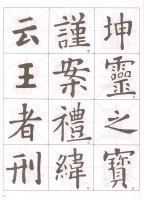 坤靈之寶
謹案禮緯
云王者刑